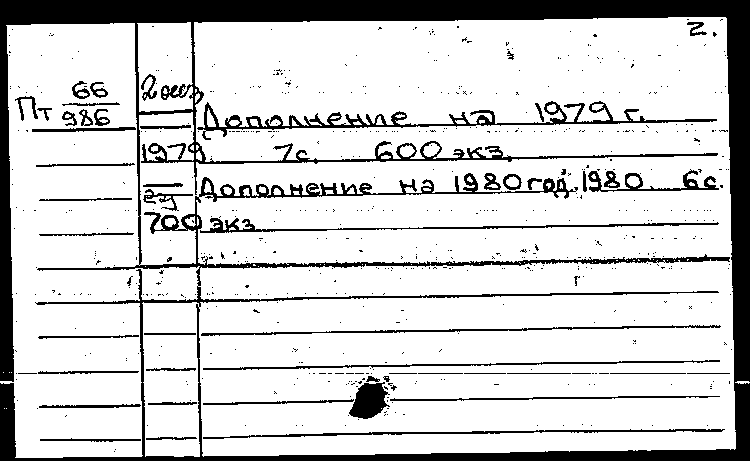 2.
Пт 66/986 2 экз
Дополнение на 1979 г.
1979. 7с. 600 экз.
Дополнение на 1980 год. 1980. 6с.
700 экз